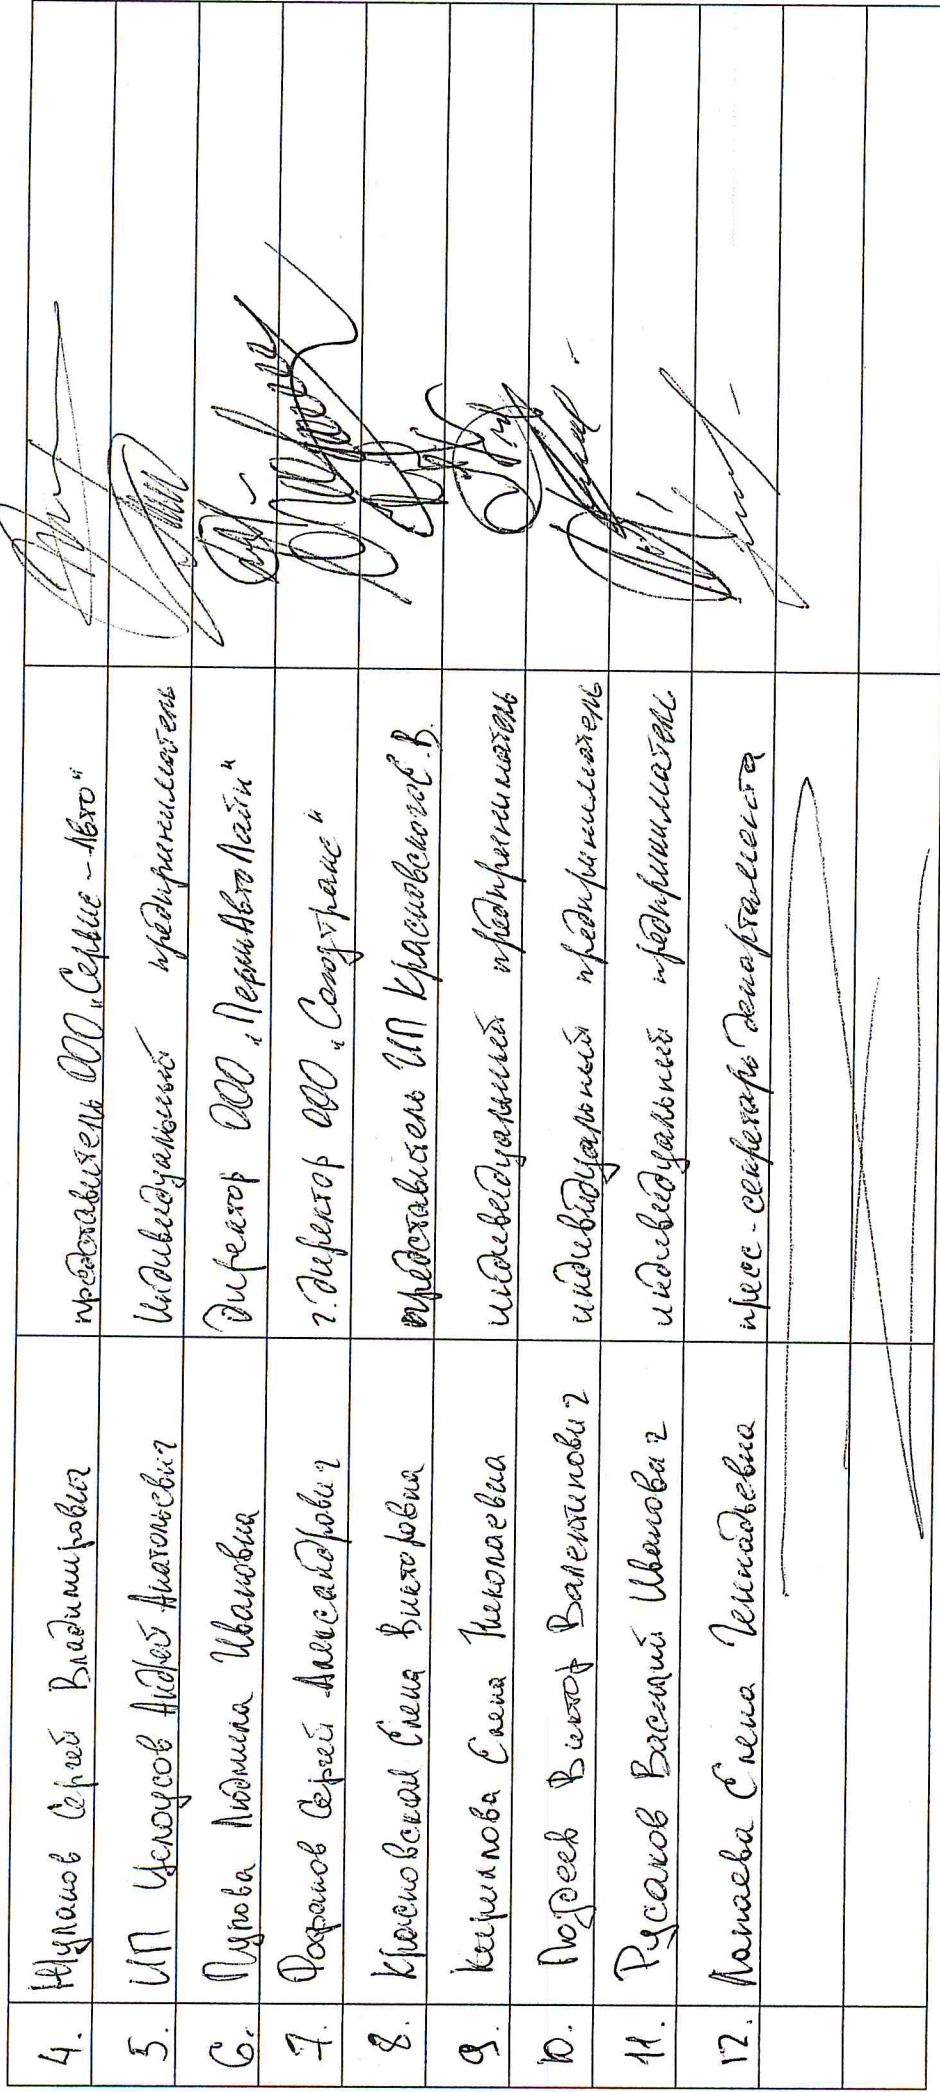 4. Жуланов Сергей Владимирович представитель ООО „Сервис-Авто"
5. ИП Целоусов Андрей Анатольевич Индивидуальный предприниматель
6. Пурова Людмила Ивановна Директор ООО „ПермьАвтоЛайн"
7. Фофанов Сергей Александрович г.директор ООО „Союзтранс"
8. Красновская Елена Викторовна представитель ИП Красновского Е.В.
9. Кирилова Елена Николаевна индивидуальный предприниматель
10. Поздеев Виктор Валентинович индивидуальный предприниматель
11. Русаков Василий Иванович индивидуальный предприниматель
12. Лопаева Елена Геннадьевна пресс-секретарь департамента